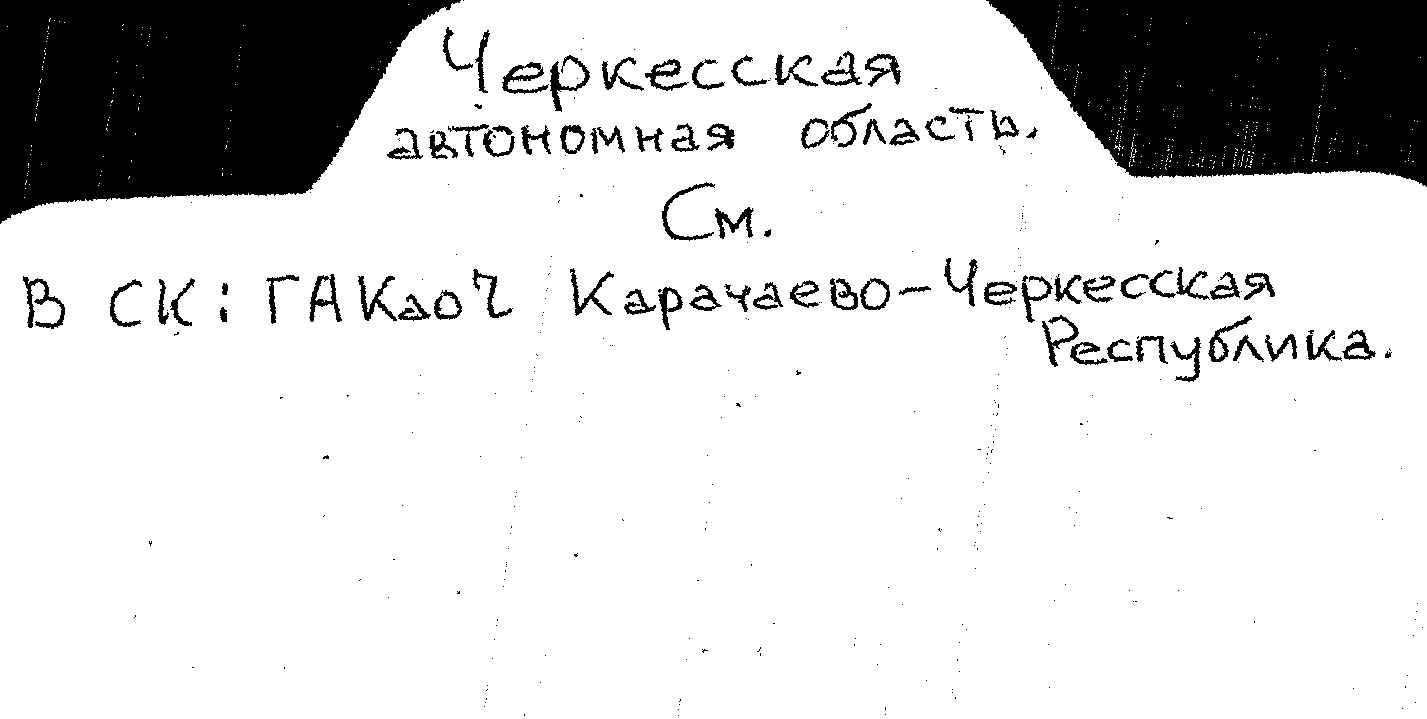 Черкесская
автономная область.
См.
В СК: ГАКаоЧ Карачаево-Черкесская
Республика.